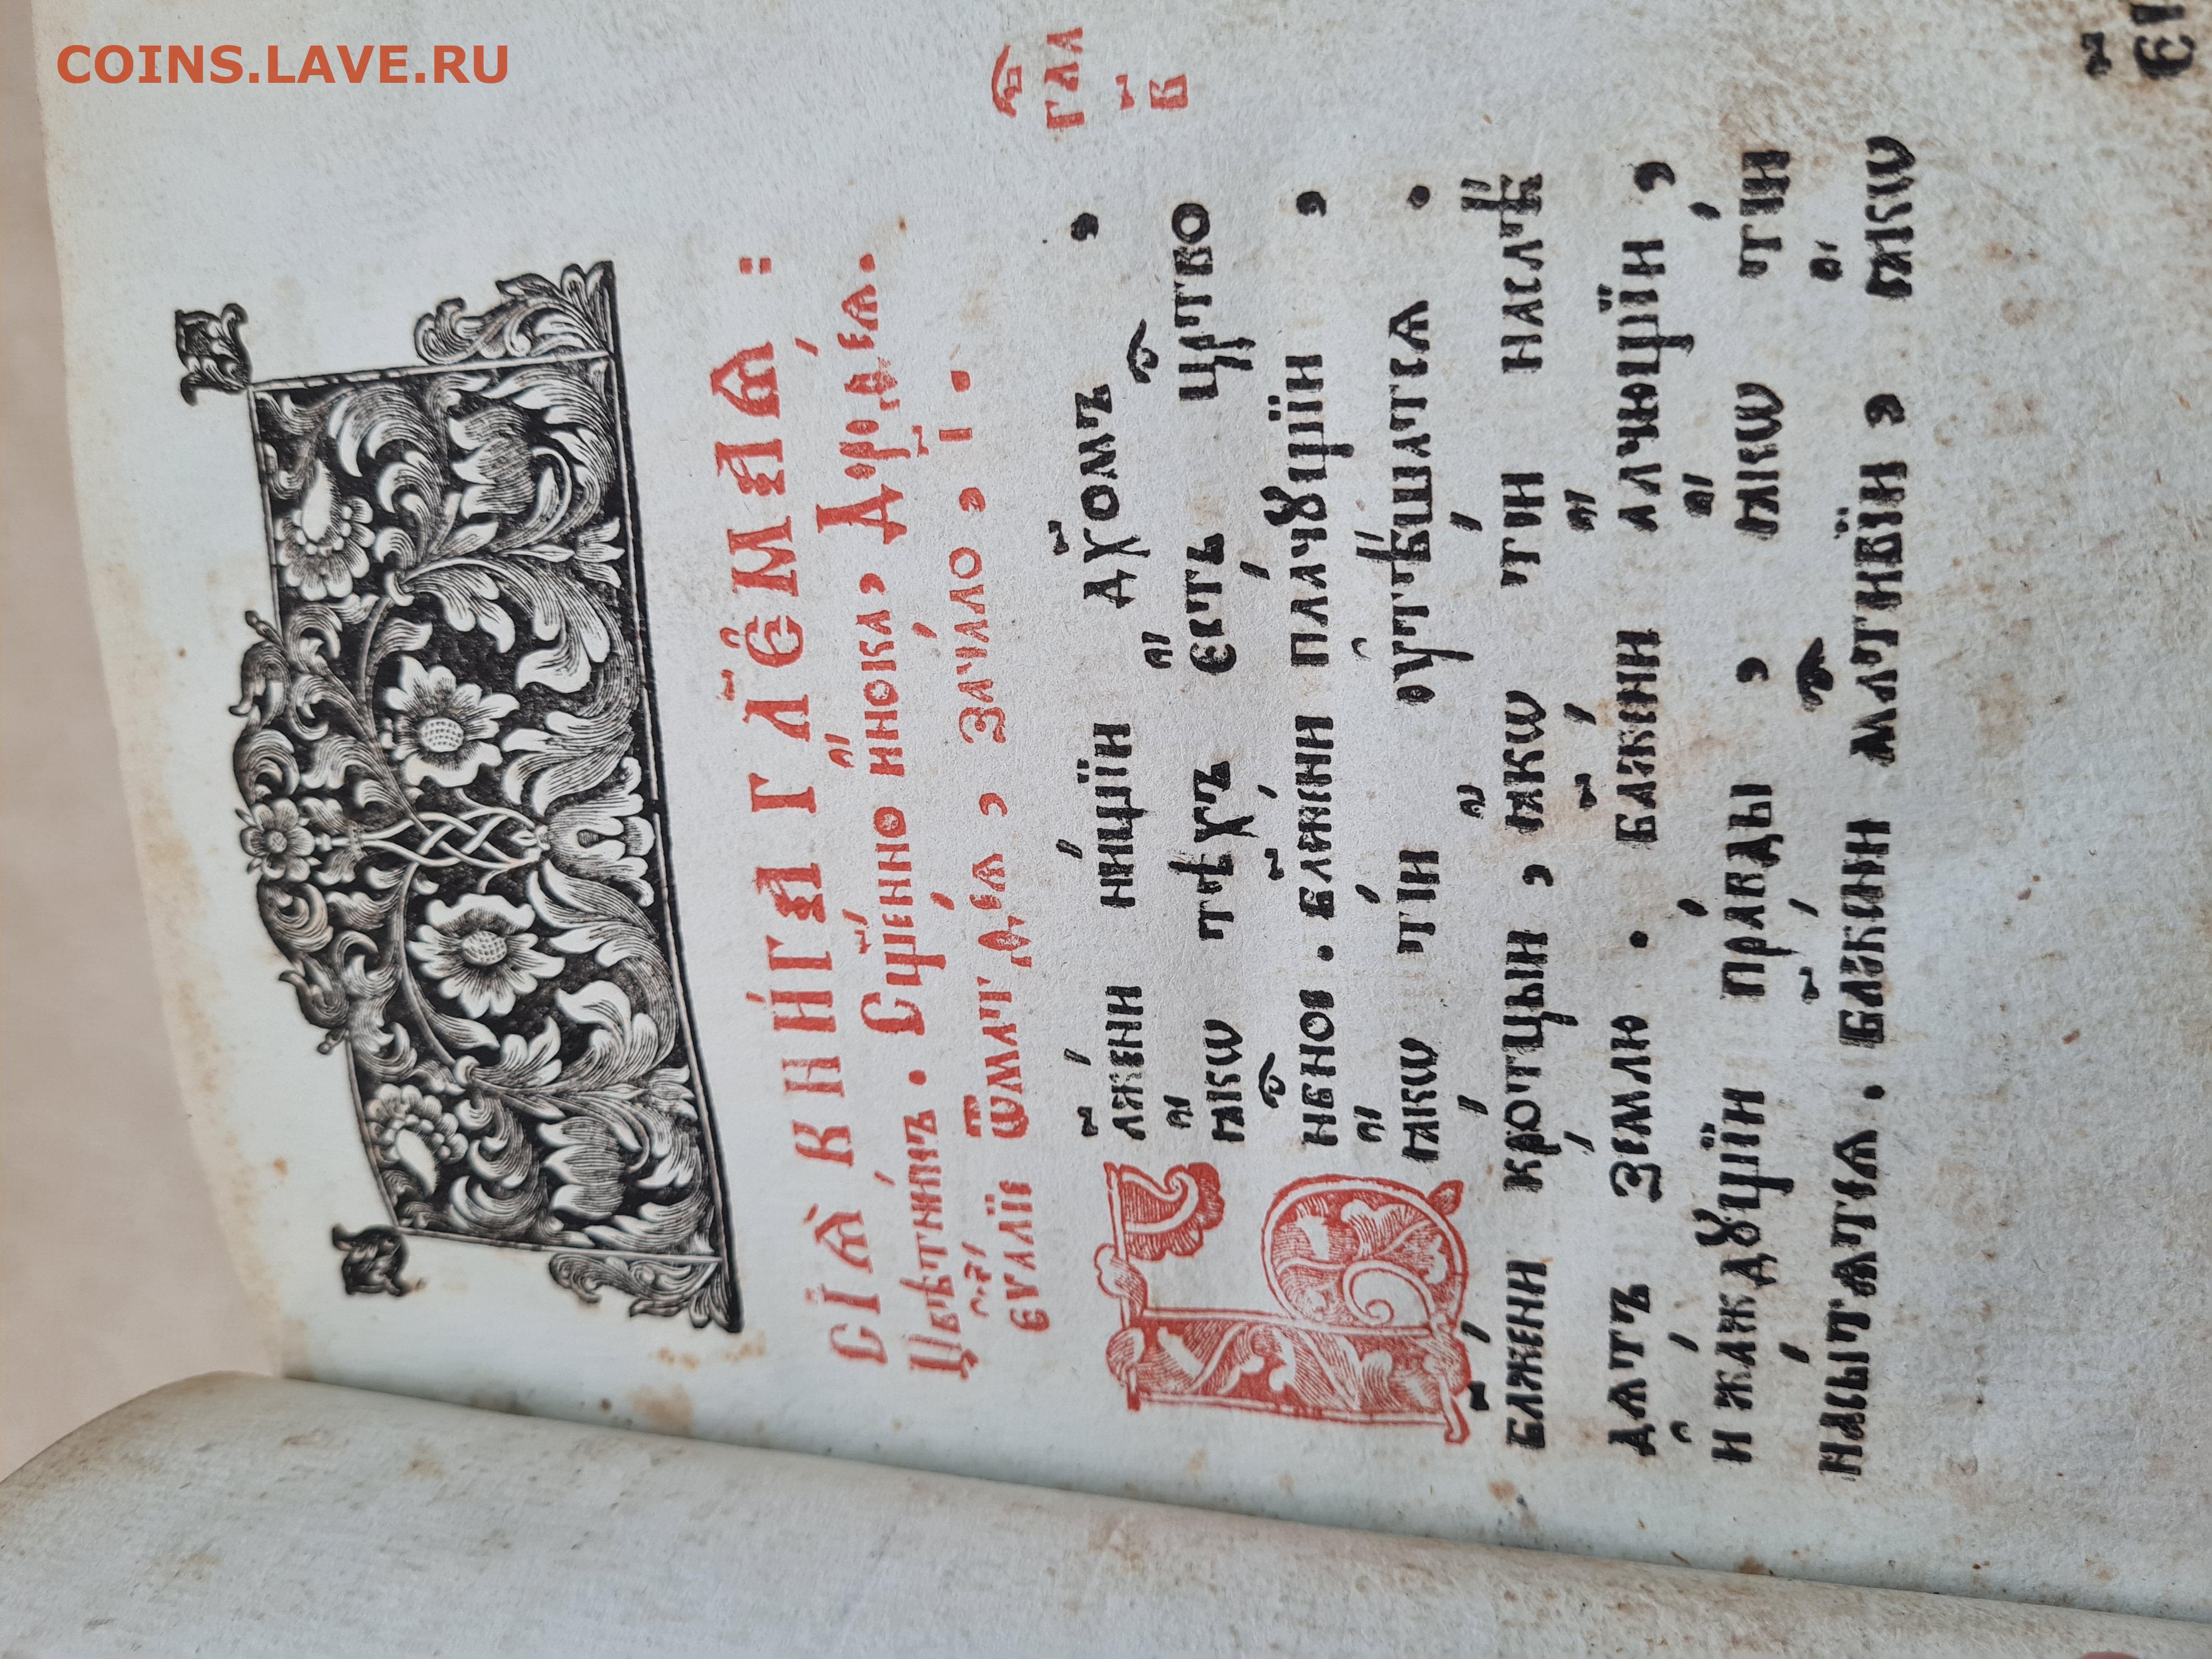 COINS.LAVE.RU
СІѦ҄ КНИ́ГА ГЛ҃Е́МАѦ :
Цвѣ́тникъ . Сщ҃е́нно и҆́нока , Дороѳе́ѧ .
Е҆ѵⷢ҇лїе ѿ матѳе́ѧ , зача́ло , і҃ .
гла
в҃
Бл҃же́ни ни́щїи дх҃омъ ,
ꙗ҆́кѡ тѣ́хъ є҆́сть цр҃тво
нбⷭ҇ное . бл҃же́ни пла́чꙋщїи ,
ꙗ҆́кѡ ті́и ᲂу҆тѣ́шатсѧ .
бл҃же́ни кро́тцыи , ꙗ҆́кѡ ті́и наслѣ́
дѧтъ зе́млю . бл҃же́ни а҆́лчющїи ,
и҆ жа́ждꙋщїи пра́вды , ꙗ҆́кѡ ті́и
насы́тѧтсѧ . бл҃же́ни млⷭ҇тивїи , ꙗ҆́кѡ
є҃і